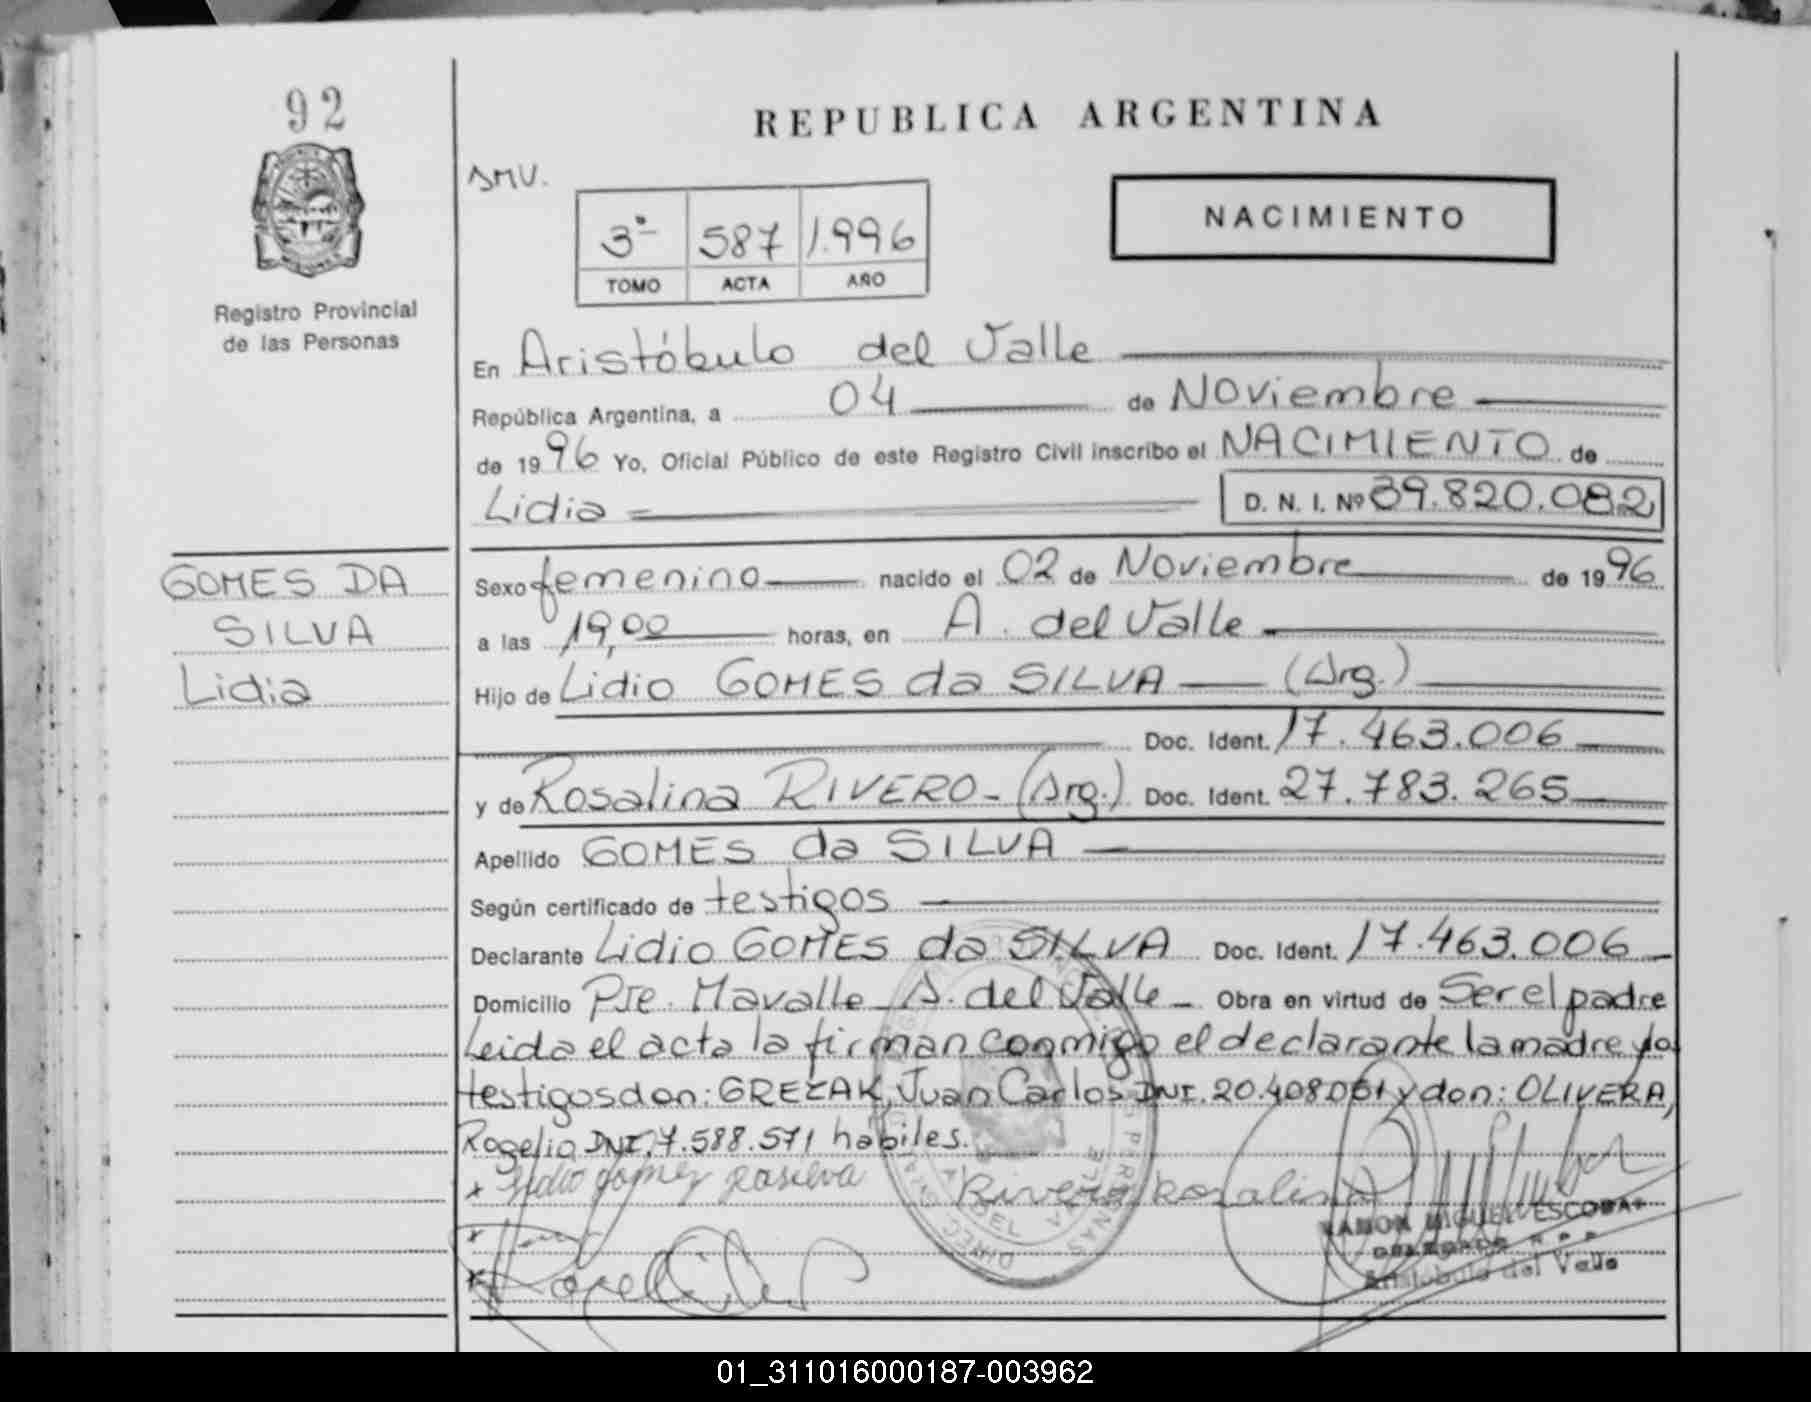 92
REPUBLICA ARGENTINA
NACIMIENTO
3ª 587 1.996
TOMO ACTA AÑO
Registro Provincial
de las Personas
En Aristóbulo del Valle
República Argentina, a 04 de Noviembre
de 1996 Yo, Oficial Público de este Registro Civil inscribo el NACIMIENTO de
Lidia D. N. I. Nº 39.820.082
GOMES DA
SILVA
Lidia
Sexo femenino nacido el 02 de Noviembre de 1996
a las 19,00 horas, en A. del Valle
Hijo de Lidio GOMES da SILVA (Arg.)
Doc. Ident. 17.463.006
y de Rosalina RIVERO - (Arg.) Doc. Ident. 27.783.265
Apellido GOMES da SILVA
Según certificado de testigos
Declarante Lidio GOMES da SILVA Doc. Ident. 17.463.006
Domicilio Pje. Mavalle A. del Valle Obra en virtud de Ser el padre
Leida el acta la firman conmigo el declarante la madre y lo
testigos don: GREZAK, Juan Carlos DNI. 20.408.061 y don: OLIVERA,
Rogelio DNI. 7.588.571 hábiles.
x Lidio gomez
Rivero Rosalina
RAMON MIGUEL ESCOBAR
DELEGADO R P P
Aristobulo del Valle
01_311016000187-003962